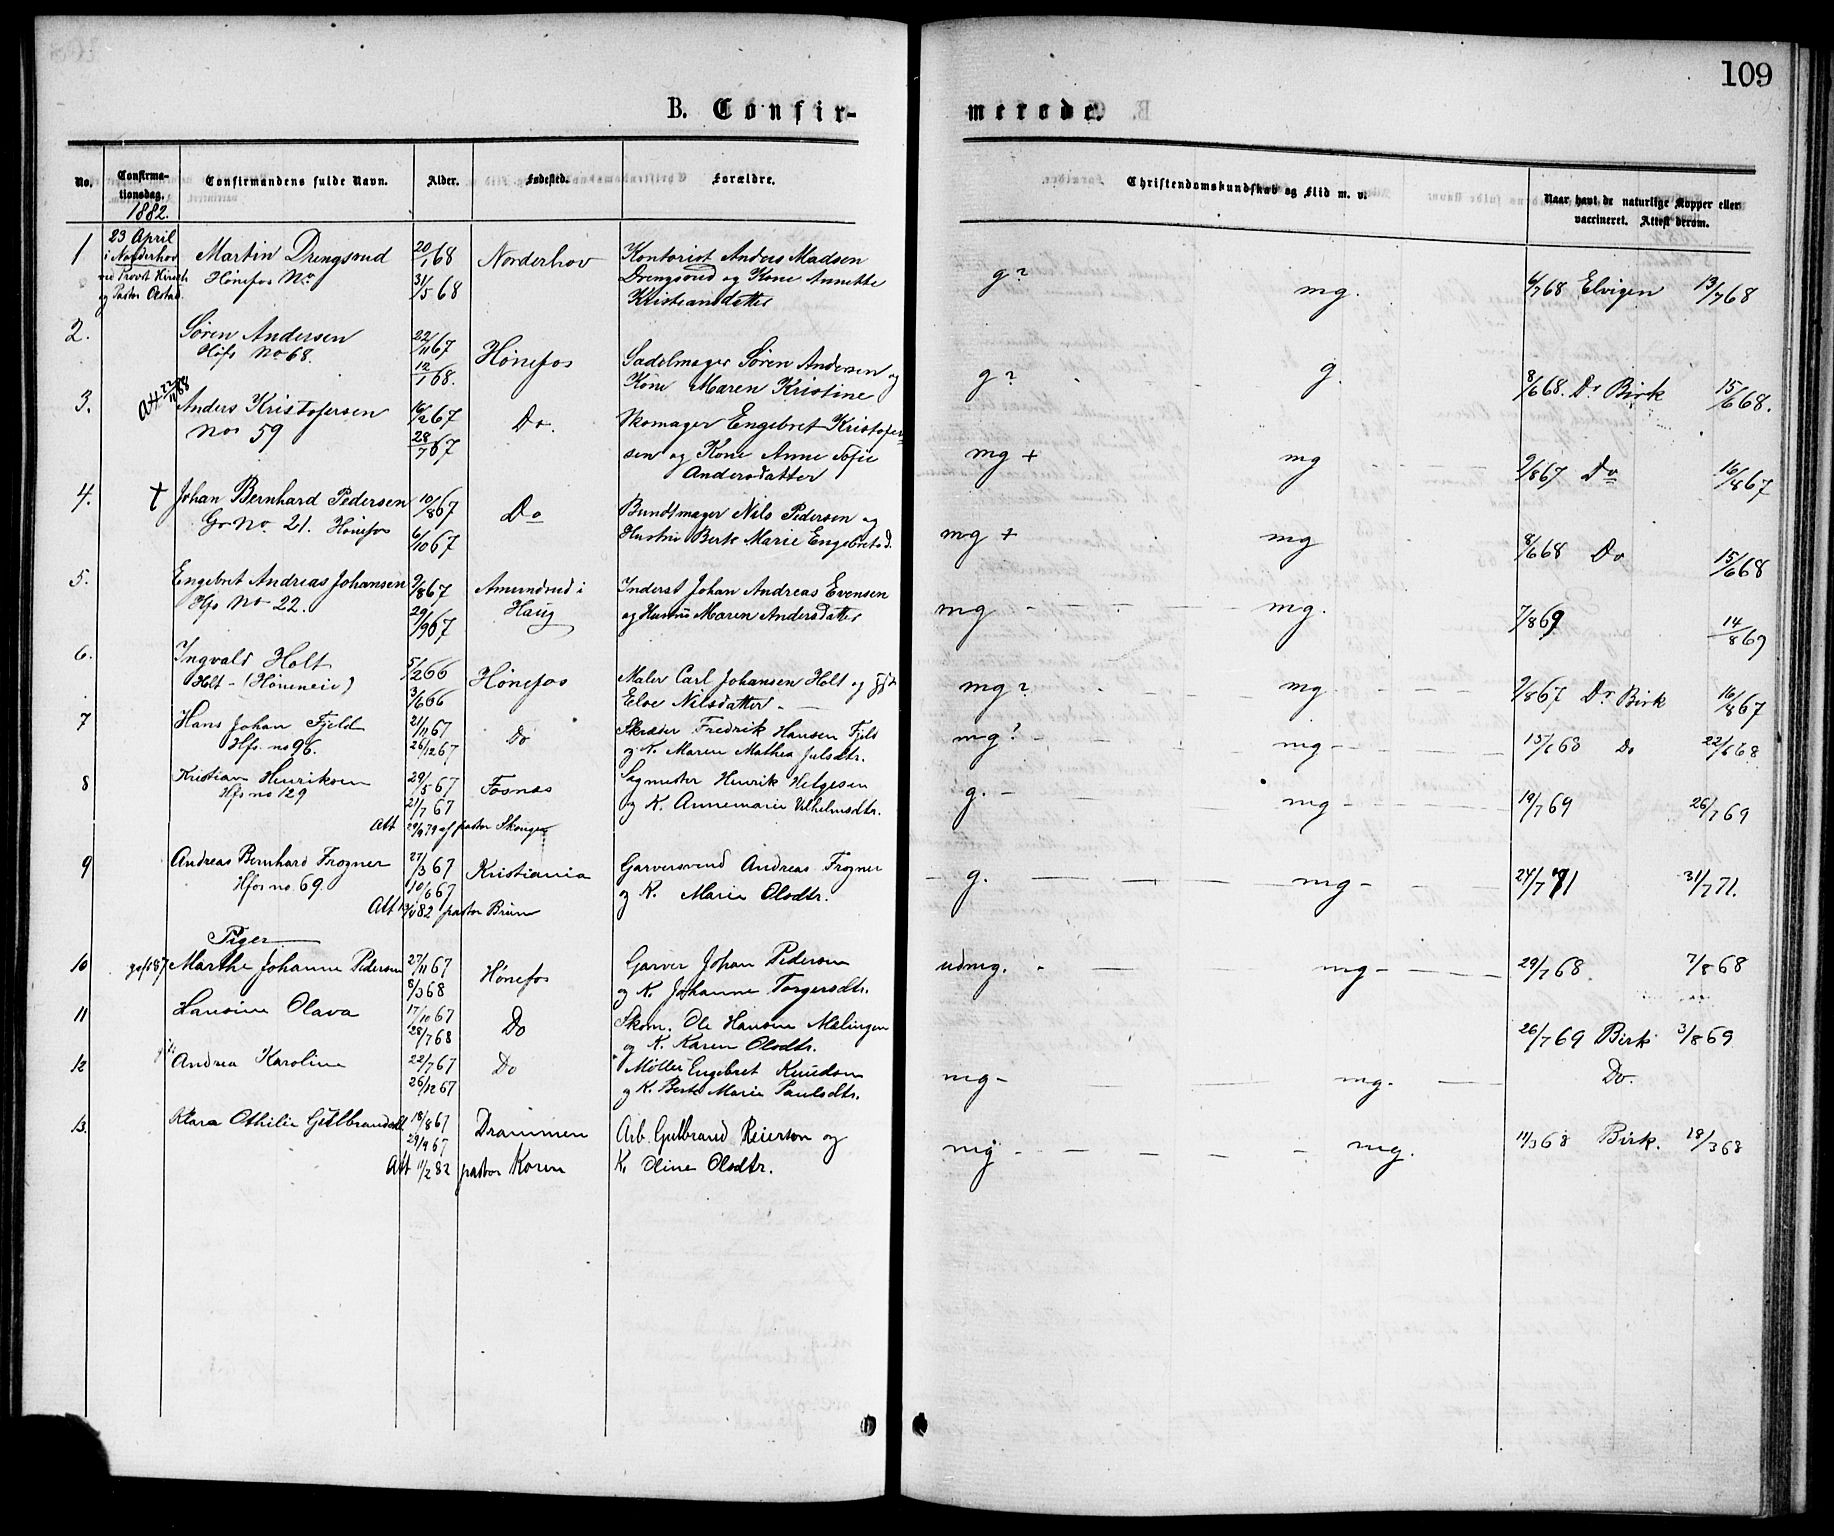 109
B. Confir-
merede.
No.
Confirma-
tionsdag.
1882.
Confirmandens fulde Navn.
Alder.
Fødested.
Forældre.
Christendomskundskab og Flid m. v.
Naar havt de naturlige Kopper eller
vaccineret. Attest derom.
1 23 April Martin Drengsrud 20/1 68 Norderhov Kontorist Anders Madsen
i Norderhov Hønefos No. 31/5 68 Drengsrud og Kone Annette
ved Provst
og Pastor Kristiansdatter
g? mg. 6/7 68 Elvigen 13/7 68
2. Søren Andersen 22/11 67 Hønefos Sadelmager Søren Andersen og
Høfs No 68. 12/1 68. Kone Maren Kristine
g? g. 8/6 68. Dr Birk 15/6 68.
3. Att 22/11 88 Anders Kristofersen 16/2 67 Do. Skomager Engebret Kristofer-
No. 59 28/7 67 sen og Kone Anne Sofie
Andersdatter
mg + mg 2/8 67 Do 16/8 67
4. † Johan Bernhard Pedersen 10/8 67 Do Bundtmager Nils Pedersen og
No. 21. Hønefos 6/10 67 Hustru Berte Marie Engebretsd.
mg + mg 8/6 68 Do 15/6 68
5. Engebret Andreas Johansen 2/8 67 Amundrud i Inderst Johan Andreas Evensen
Hfs No 22. 29/9 67 Haug og Hustru Maren Andersdatter
mg mg. 7/8 69 14/8 69
6. Ingvald Holt 5/2 66 Hønefos Maler Carl Johansen Holt og
Holt - (Høneneie) 3/6 66 Eloe Nilsdatter
mg? mg 2/8 67 Dr Birk 16/8 67
7 Hans Johan Fjeld 21/11 67 Do Skræder Fredrik Hansen Fjeld
Hfs. no 96. 26/12 67 og K. Maren Mathea Julsdtr.
mg? mg 15/6 68 Do 22/6 68
8 Kristian Henriksen 29/5 67 Fosnæs Sagmester Henrik Helgesen
Hfs no 129 21/7 67 og K. Annemarie Vilhelmsdtr.
Att 29/9 79 af pastor
g. mg 19/7 69 26/7 69
9 Andreas Bernhard Frogner 27/3 67 Kristiania Garversvend Andreas Frogner
Hfos no. 69. 10/6 67 og K. Marie Olsdtr.
Att 13/4 82 pastor Bruun
g. mg 24/7 71 31/7 71.
Piger
10 Marthe Johanne Pedersen 27/11 67 Hønefos Garver Johan Pedersen
8/3 68 og K. Johanne Torgersdtr.
udmg. mg 29/7 68. 7/8 68
11 Hansine Olava 17/10 67 Do Skom. Ole Hansen Mælingen
28/7 68 og K. Karen Olsdtr.
26/7 69 Birk 3/8 69
12 Andrea Karoline 22/7 67 Do Møller Engebret Knudsen
26/12 67 og K. Berte Marie Paulsdtr.
mg mg. Do.
13. Klara Othilie Gulbrandsdt 18/8 67 Drammen Arb. Gulbrand Reierson og
29/9 67 K. Oline Olsdtr.
Att 11/2 82 pastor Koren
mg mg. 11/3 68 Birk. 18/3 68